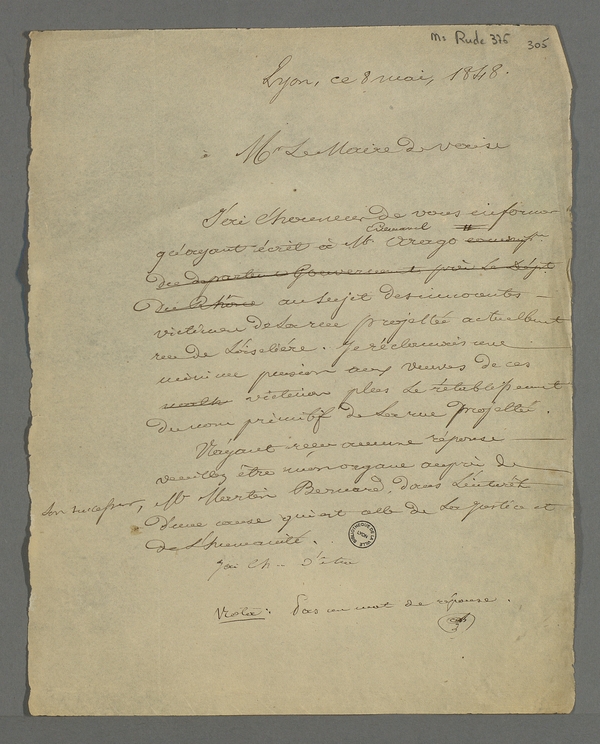 Ms Rude 375 305
Lyon, ce 8 mai, 1848.
Mr Le Maire de Vaise
J'ai l'honneur de vous informer
Emmanuel
qu'ayant écrit à Mr Arago
du Gouvernement près Le Dépt
du Rhône au sujet des innocentes
victimes de La rue projettée actuellement
rue de L'oiselière. Je réclamais une
minime pension aux veuves de ces
victimes plus Le rétablissement
du nom primitif de La rue projettée.
N'ayant reçu aucune réponse
veuillez être mon organe auprès de
son successeur, Mr Martin Bernard, dans L'intérêt
d'une cause qui est celle de La justice et
de L'humanité.
J'ai L'h... d'être
BIBLIOTHEQUE DE LA VILLE LYON
Nota: Pas un mot de réponse.